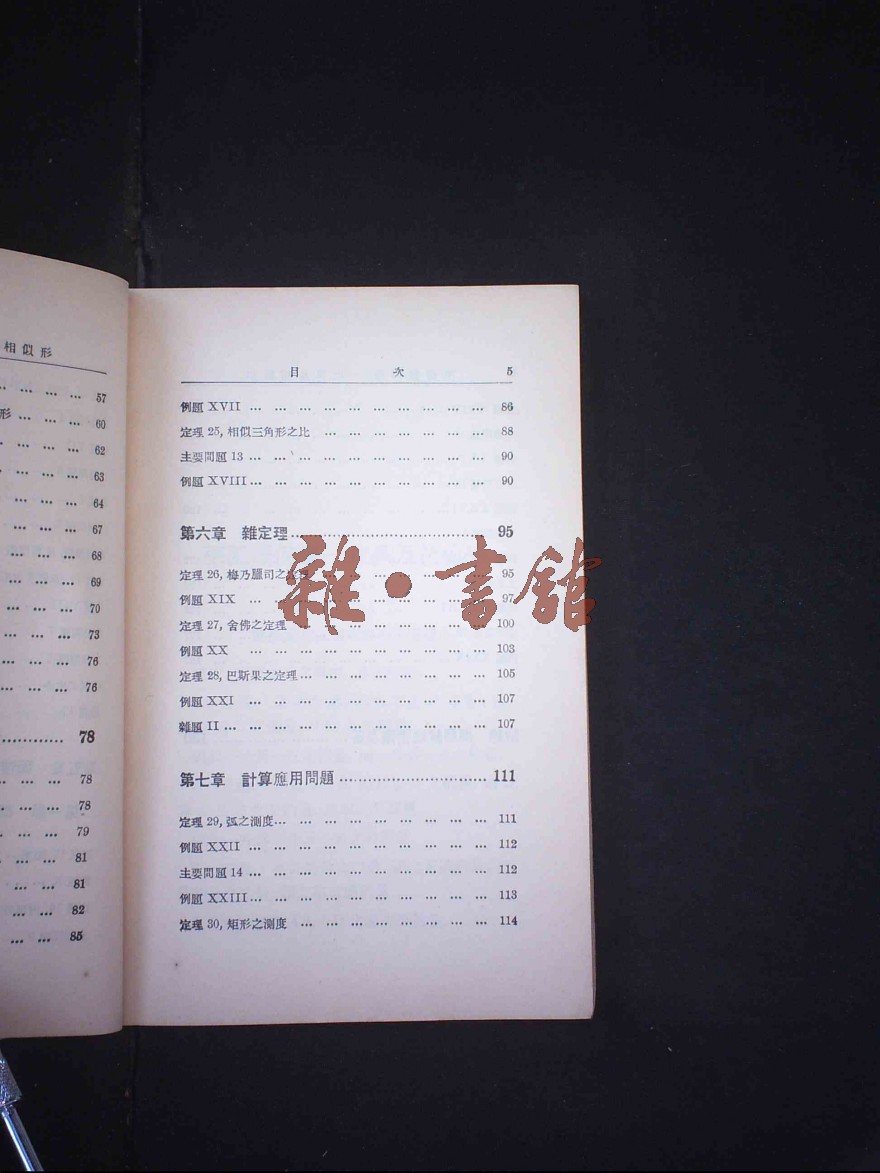 相似形
… … … … 57
形 … … … … 60
… … … 62
… … … 63
… … … 64
… … … 67
… … … 68
… … … 69
… … … 70
… … … 73
… … … 76
… … … 76
………… 78
… … … 78
… … … 78
… … … 79
… … … 81
… … … 81
… … … 82
… … … 85
目 次 5
例題 XVII … … … … … … … … … … 86
定理 25, 相似三角形之比 … … … … … … … 88
主要問題 13 … … … … … … … … … … 90
例題 XVIII … … … … … … … … … … 90
第六章 雜定理 ………………………………… 95
定理 26, 梅乃臘司之定理 … … … … … … … 95
例題 XIX … … … … … … … … … … 97
定理 27, 舍佛之定理 … … … … … … … … 100
例題 XX … … … … … … … … … … 103
定理 28, 巴斯果之定理 … … … … … … … … 105
例題 XXI … … … … … … … … … … 107
雜題 II … … … … … … … … … … … 107
第七章 計算應用問題 ………………………… 111
定理 29, 弧之測度 … … … … … … … … … 111
例題 XXII … … … … … … … … … … 112
主要問題 14 … … … … … … … … … … 112
例題 XXIII … … … … … … … … … … 113
定理 30, 矩形之測度 … … … … … … … … 114
雜·書館